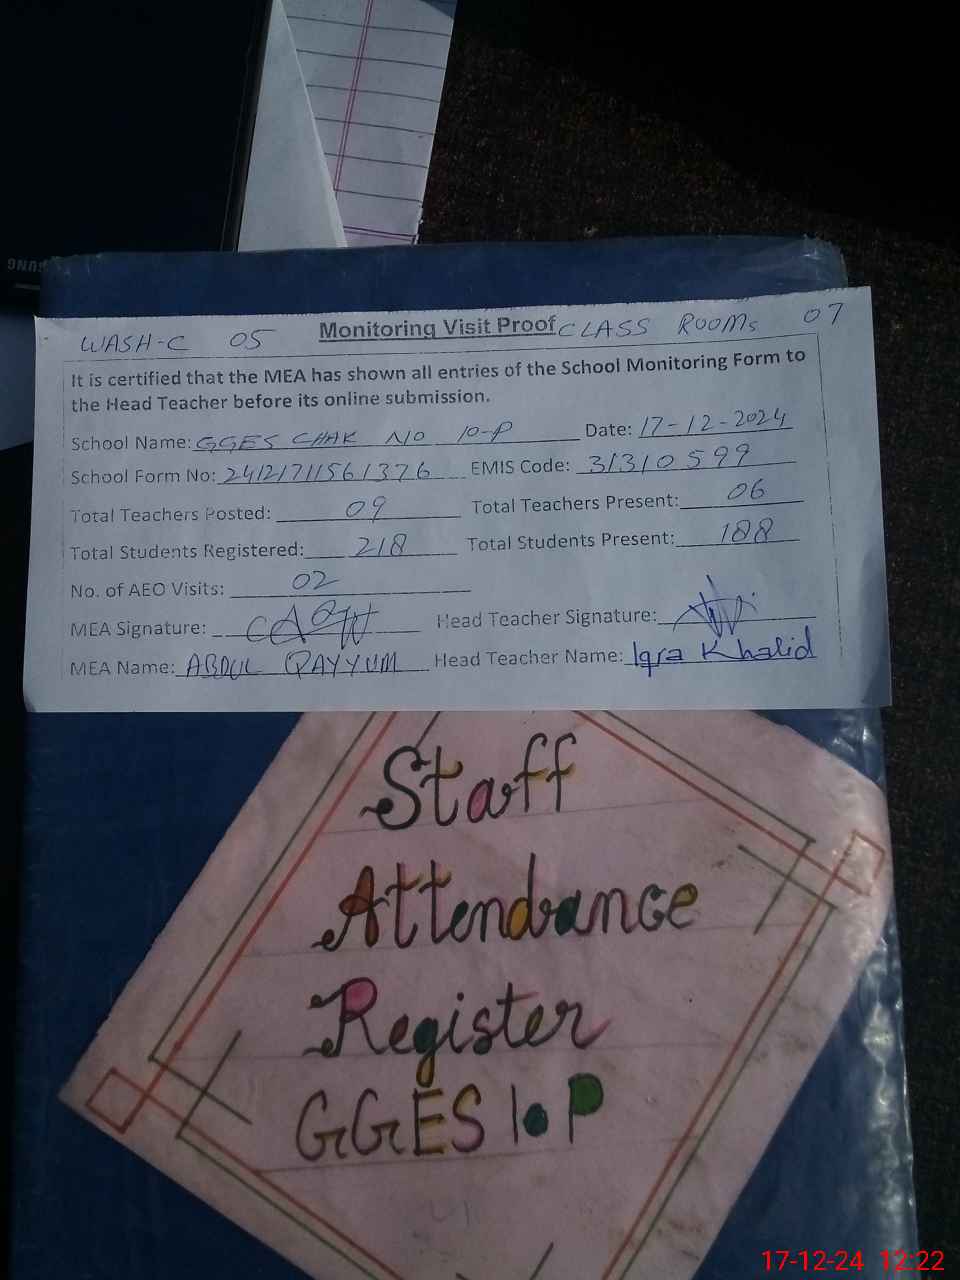 WASH-C 05 Monitoring Visit Proof CLASS ROOMs 07
It is certified that the MEA has shown all entries of the School Monitoring Form to
the Head Teacher before its online submission.
School Name: GGES CHAK NO 10-P Date: 17-12-2024
School Form No: 24121711561376 EMIS Code: 31310599
Total Teachers Posted: 09 Total Teachers Present: 06
Total Students Registered: 218 Total Students Present: 188
No. of AEO Visits: 02
MEA Signature: Head Teacher Signature:
MEA Name: ABDUL QAYYUM Head Teacher Name: Iqra Khalid
Staff
Attendance
Register
GGES 10 P
17-12-24 12:22